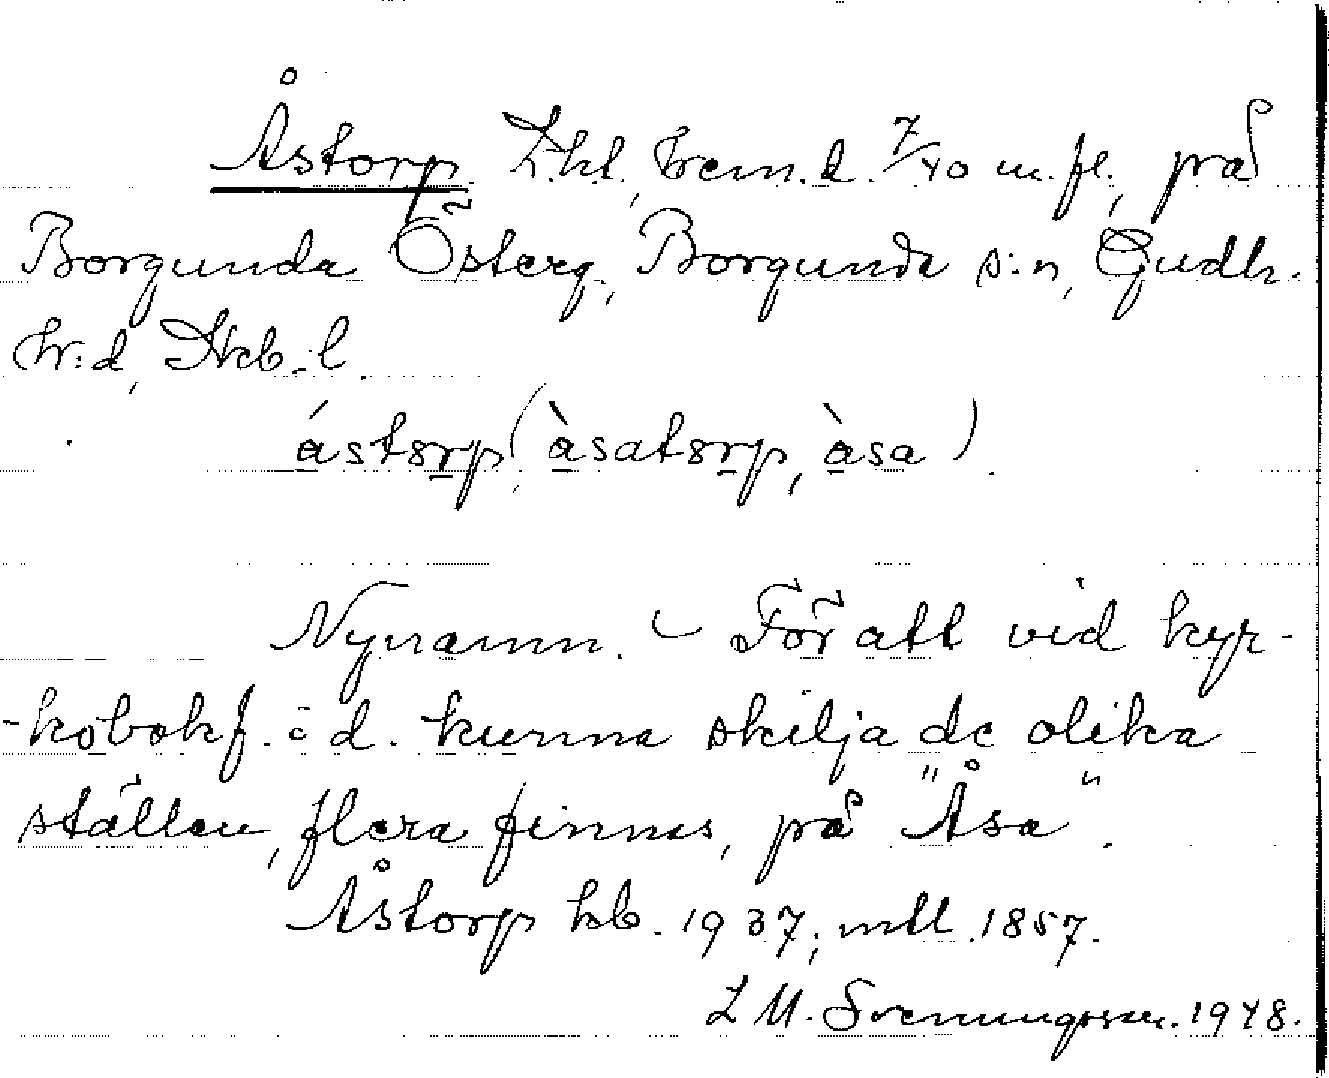 Åstorp Lht, hem.d. 7/40 m.fl., på
Borgunda Österg., Borgunda s:n, Gudh.
hr:d, Skb.l.
ástorp (àsatorp, àsa).
Nynamn. – För att vid kyr-
-kobokf. o d. kunna skilja de olika
ställen, flera finnas, på "Åsa".
Åstorp kb. 1937; mtl 1857.
L M. Svenungsson. 1948.